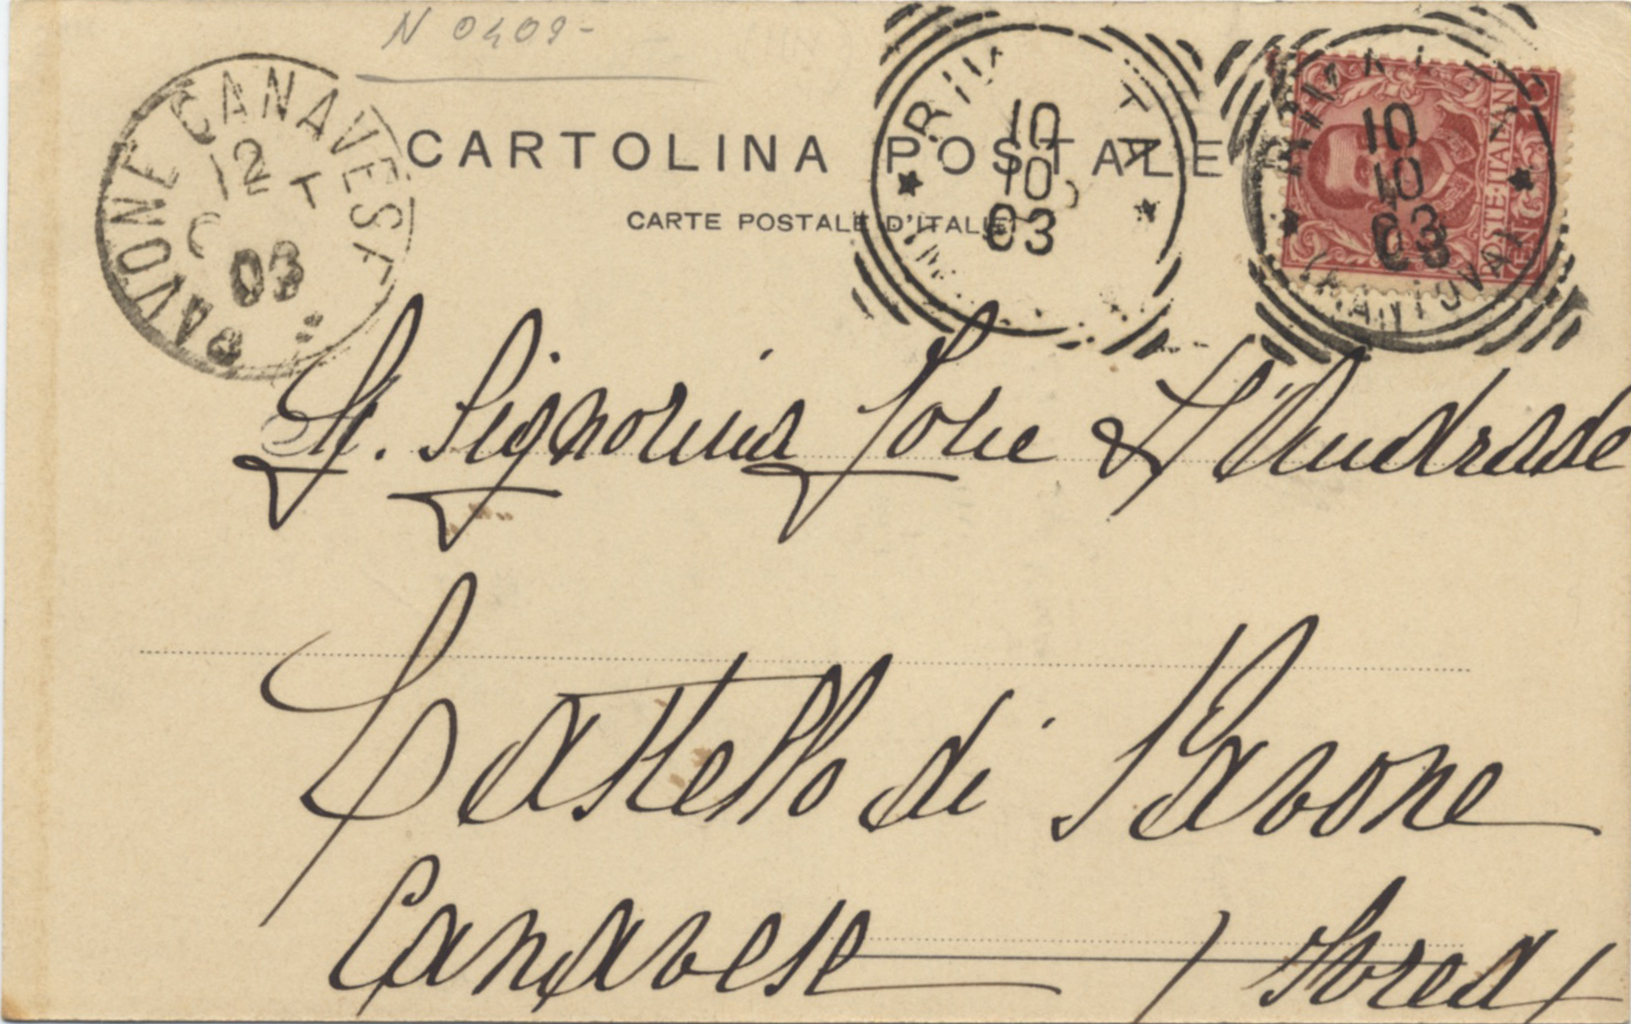 N 0409-
CARTOLINA POSTALE
CARTE POSTALE D'ITALIE
PAVONE CANAVESE
12
03
10
10
03
10
10
03
(MANTOVA)
POSTE ITALIANE
Signorina Jole D'Andrade
Castello di Pavone
Canavese (Ivrea)